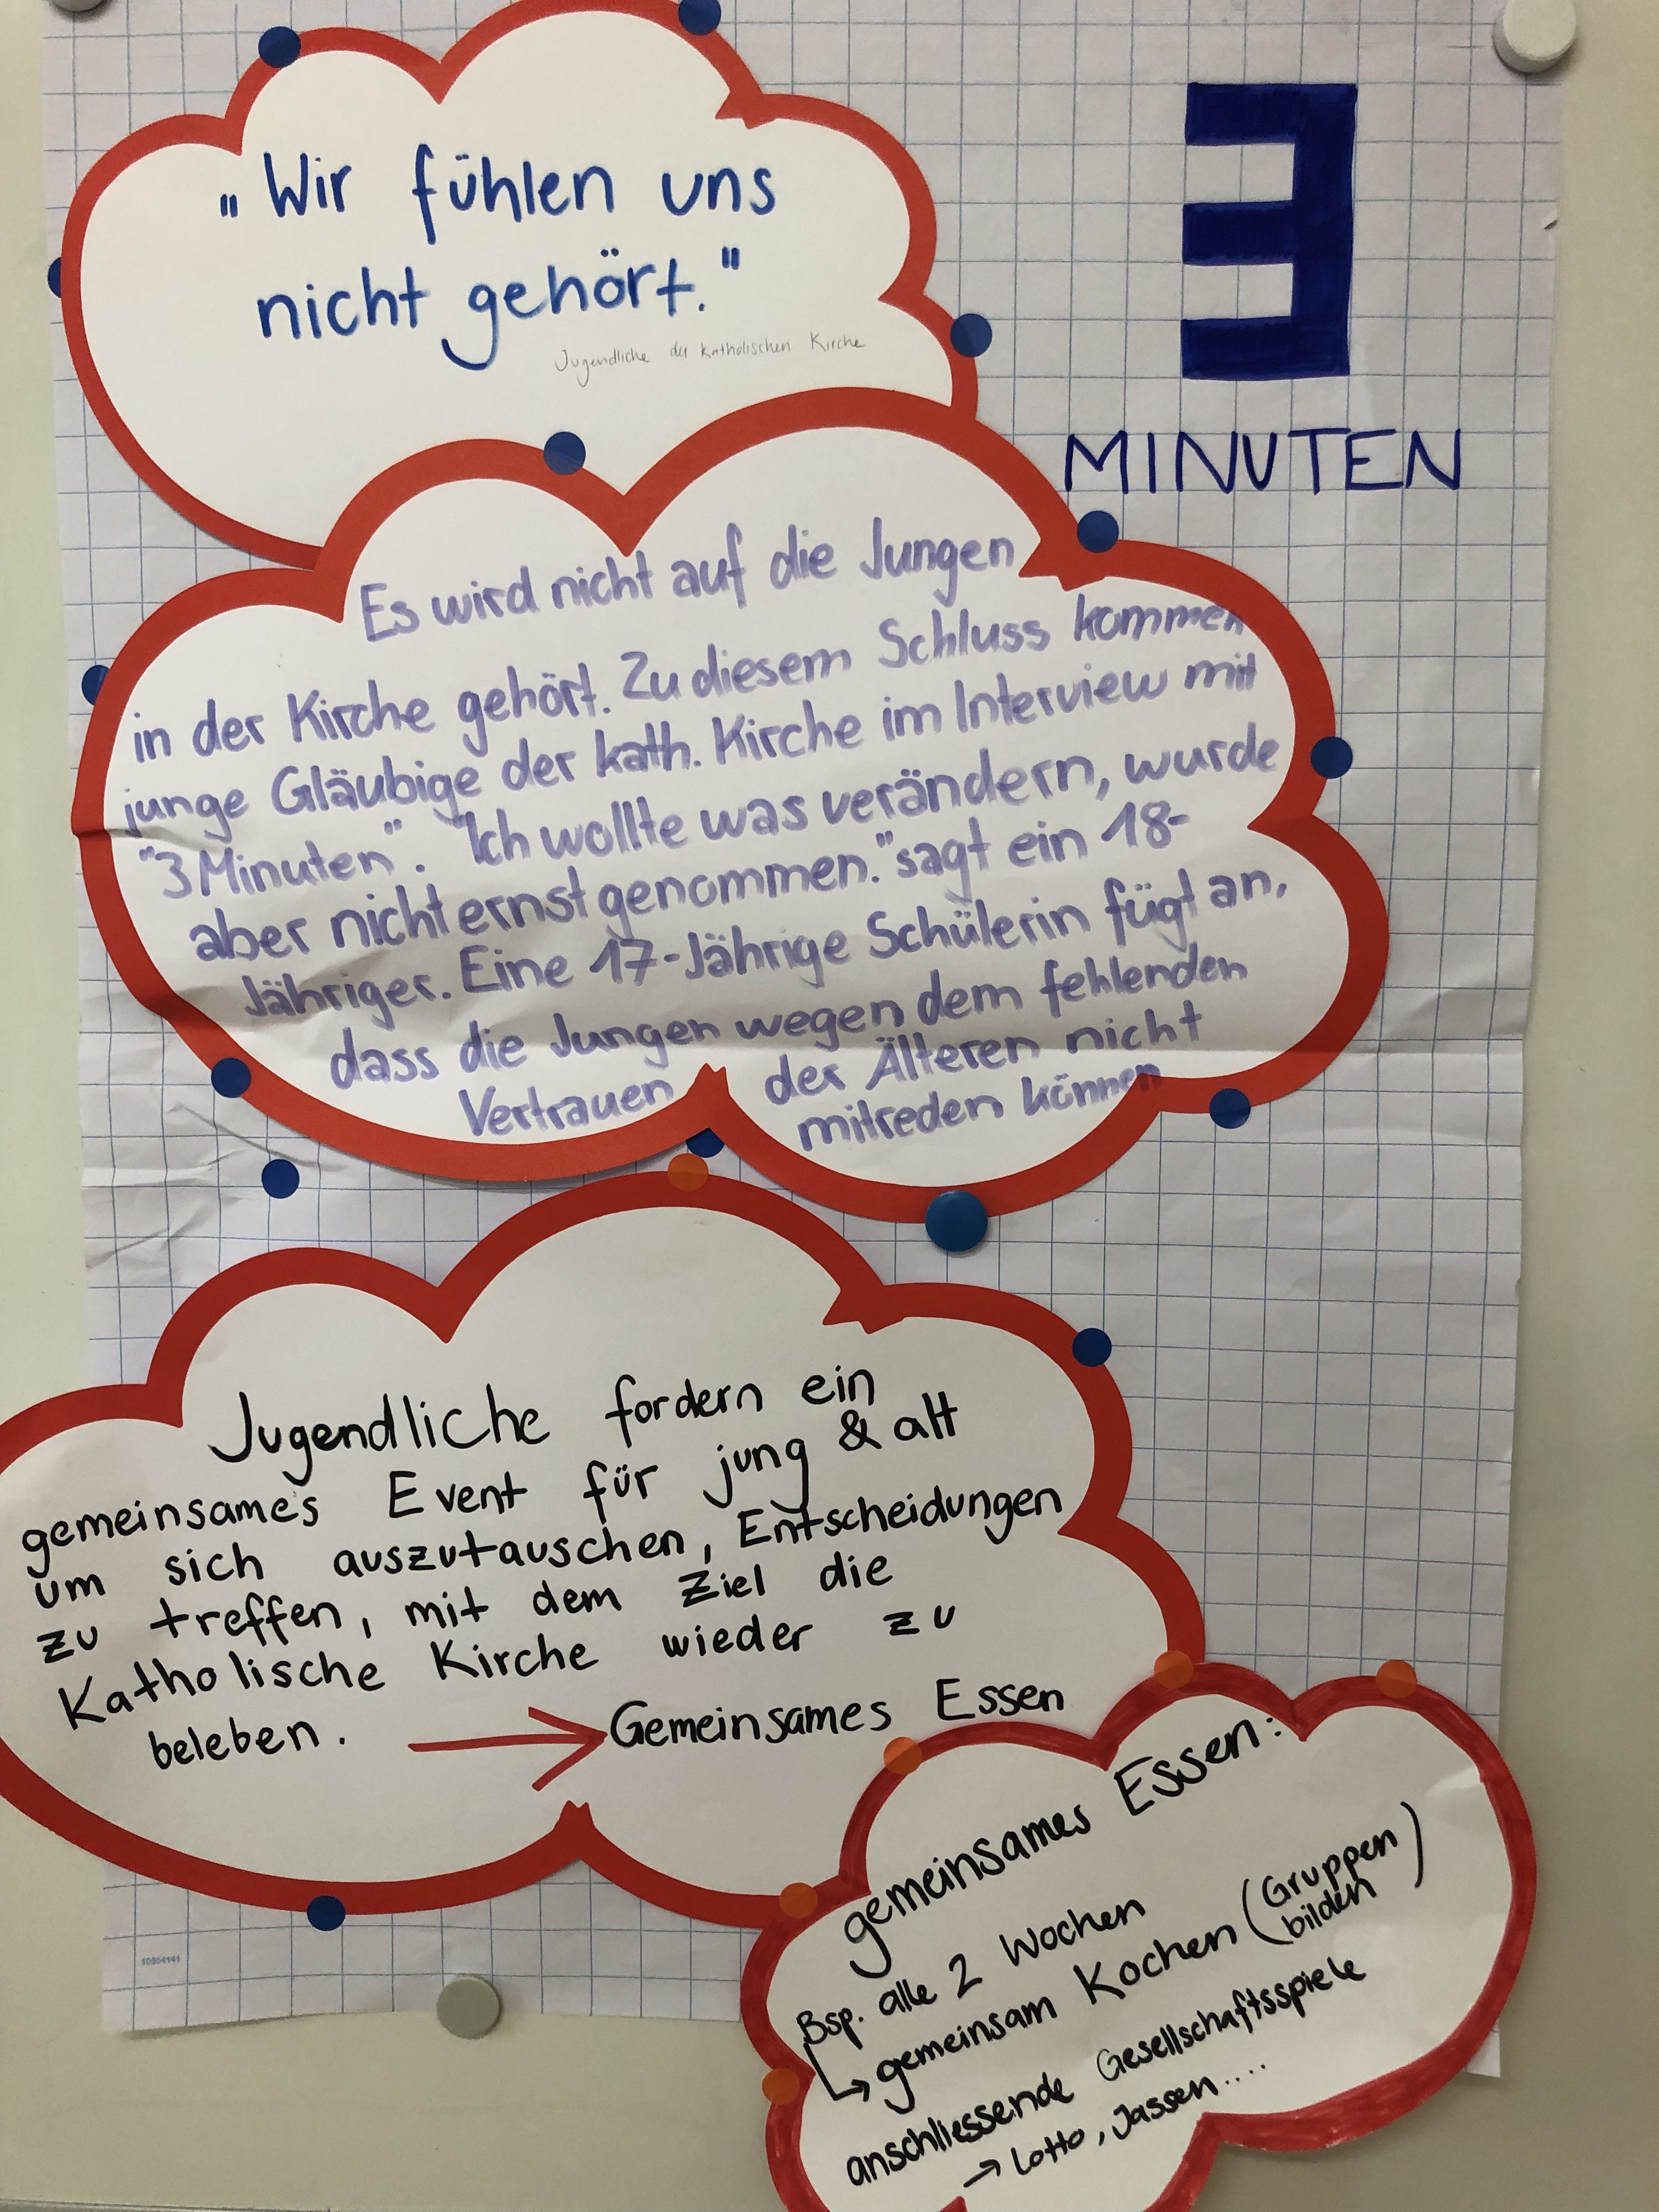 „Wir fühlen uns
nicht gehört."
Jugendliche der katholischen Kirche
3
MINUTEN
Es wird nicht auf die Jungen
in der Kirche gehört. Zu diesem Schluss kommen
junge Gläubige der kath. Kirche im Interview mit
"3 Minuten". "Ich wollte was verändern, wurde
aber nicht ernst genommen." sagt ein 18-
Jähriger. Eine 17-Jährige Schülerin fügt an,
dass die Jungen wegen dem fehlenden
Vertrauen der Älteren nicht
mitreden können
Jugendliche fordern ein
gemeinsames Event für jung & alt
um sich auszutauschen, Entscheidungen
zu treffen, mit dem Ziel die
Katholische Kirche wieder zu
beleben. → Gemeinsames Essen
gemeinsames Essen:
Bsp. alle 2 Wochen
↳ gemeinsam Kochen (Gruppen
bilden)
anschliessende Gesellschaftsspiele
→ Lotto, Jassen....
10804141